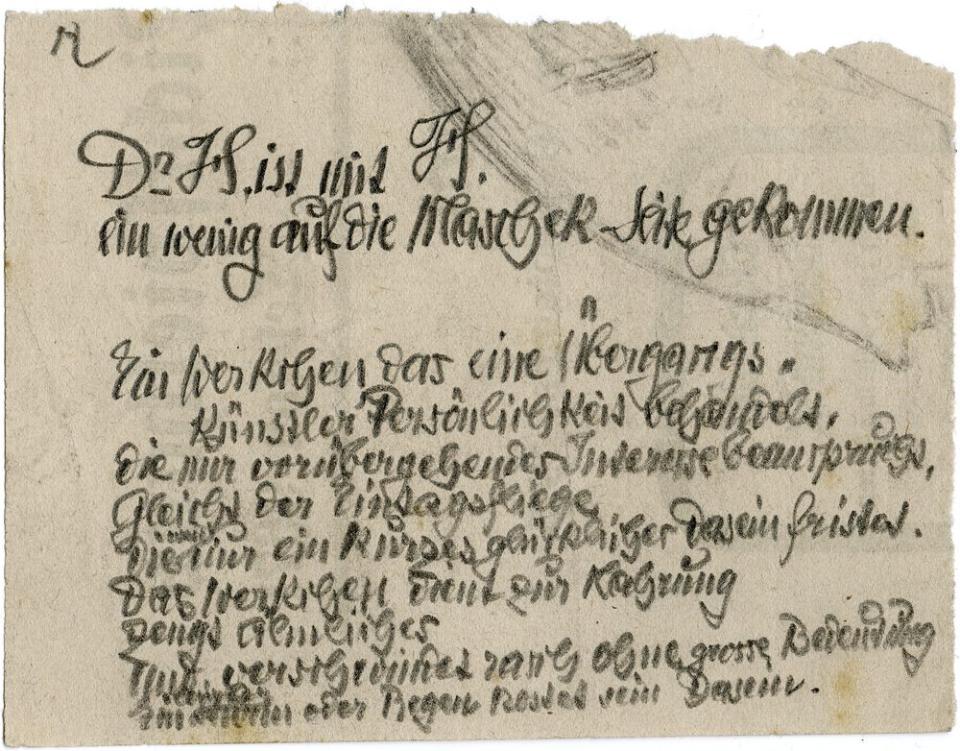 Dr. H. ist mit H.
ein wenig auf die Maschek-Seite gekommen.
Ein Werkchen das eine Übergangs-
Künstler Persönlichkeit behandelt,
die nur vorübergehendes Interesse beansprucht,
Gleicht der Eintagsfliege
die nur ein kurzes glückliches Dasein fristet.
Das Werkchen dient zur Nahrung
und verschwindet rasch ohne grosse Bedeutung
oder Regen kostet sein Dasein.